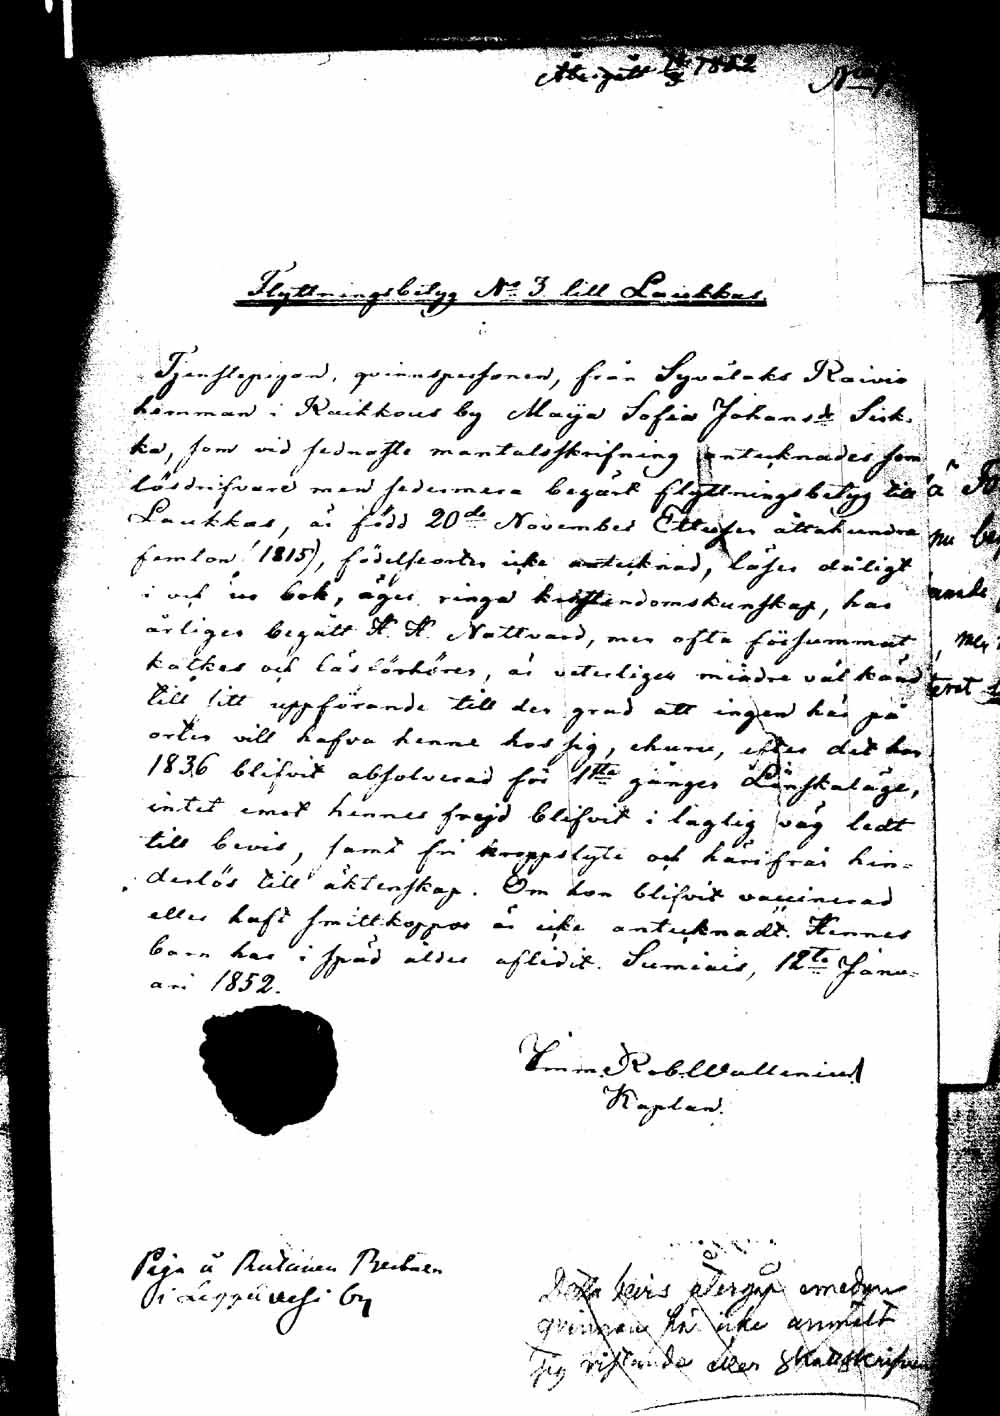 Återgått 14/3 1852
Flyttningsbetyg No 3 till Laukkas.
Tjenstepigan, qvinnspersonen, från Syvälaks Raivio
hemman i Kuikkous by Maija Sofia Johansdr Sirk-
ka, som vid sednaste mantalsskrifning antecknades som
lösdrifvare men sedermera begärt flyttningsbetyg till
Laukkas, är född 20de November Ettusen åttahundra
femton (1815), födelseorten icke antecknad, läser dåligt
i och ur bok, äger ringa kristendomskunskap, har
årligen begått H. H. Nattvard, men ofta försummat
katkes och läsförhören, är veterligen mindre väl känd
till sitt uppförande till den grad att ingen här på
orten vill hafva henne hos sig, churu, efter det hon
1836 blifvit absolverad för 1sta gångens Lönskaläge,
intet emot hennes frejd blifvit i laglig väg ledt
till bevis, samt fri kroppslyte och härifrån hin-
derlös till äktenskap. Om hon blifvit vaccinerad
eller haft smittkoppor är icke antecknadt. Hennes
barn har i späd ålder aflidit. Sumiais, 12te Janu-
ari 1852.
Rob. Wallenius
Kaplan.
Piga å Rutanen
i Leppävesi by
Detta bevis återgår emedan
qvinnan här icke anmält
sig vistande eller skattskrifven